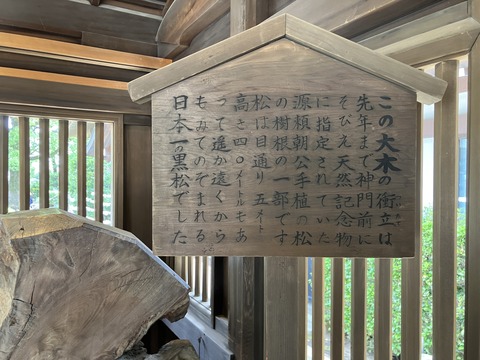 この大木の衝立は
先年まで神門前に
そびえ天然記念物
に指定されていた
源頼朝公手植の松
の樹根の一部です
松は目通り五メート
高さ四〇メートルもあ
って遥か遠くから
もみてのぞまれる
日本一の黒松でした